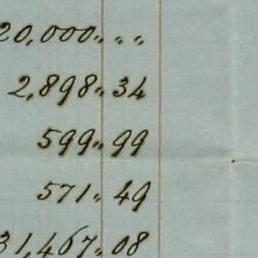 20,000 „ „ „
2,898 „ 34
599 „ 99
571 „ 49
31,467 „ 08